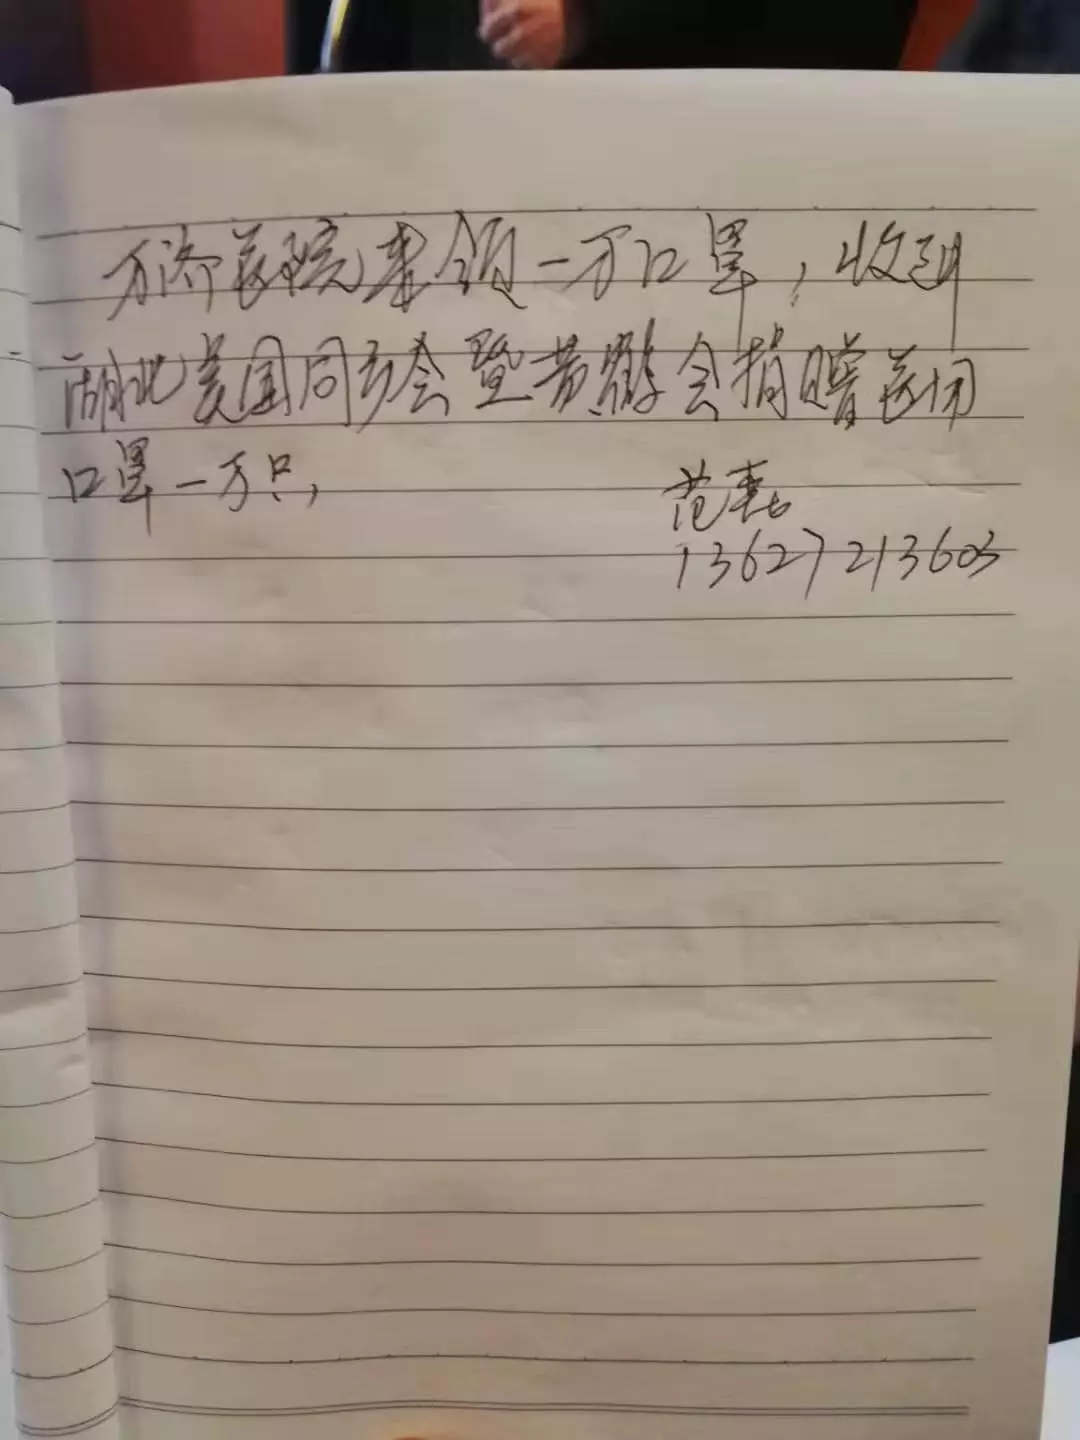 万济医院来领一万口罩，收到
湖北美国同乡会暨黄鹤会捐赠医用
口罩一万只，
范
13627213603